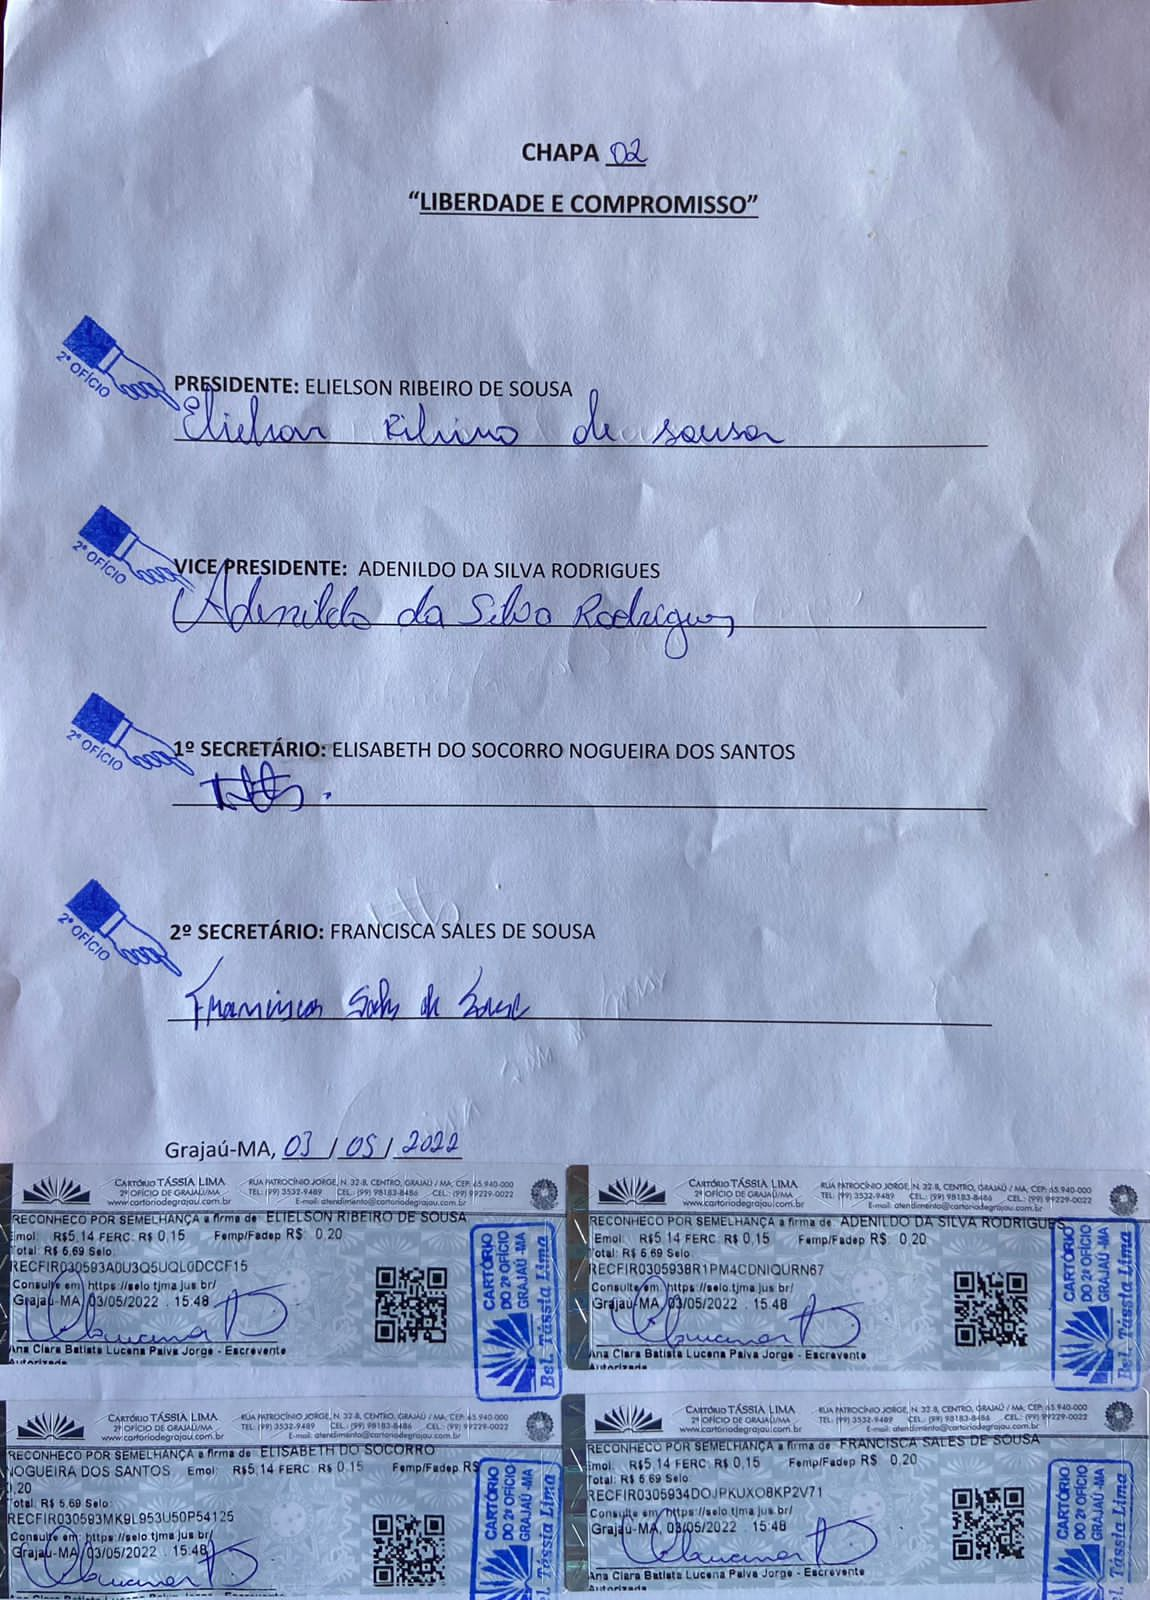 CHAPA 02
“LIBERDADE E COMPROMISSO”
2º OFÍCIO
PRESIDENTE: ELIELSON RIBEIRO DE SOUSA
Elielson Ribeiro de Sousa
2º OFÍCIO
VICE PRESIDENTE: ADENILDO DA SILVA RODRIGUES
Adenildo da Silva Rodrigues
2º OFÍCIO
1º SECRETÁRIO: ELISABETH DO SOCORRO NOGUEIRA DOS SANTOS
2º OFÍCIO
2º SECRETÁRIO: FRANCISCA SALES DE SOUSA
Francisca Sales de Sousa
Grajaú-MA, 03 / 05 / 2022
CARTÓRIO TÁSSIA LIMA
2º OFÍCIO DE GRAJAÚ/MA
www.cartoriodegrajau.com.br
RUA PATROCÍNIO JORGE, N. 32-B, CENTRO, GRAJAÚ / MA, CEP: 65.940-000
TEL: (99) 3532-9489 CEL.: (99) 98183-8486 CEL.: (99) 99229-0022
E-mail: atendimento@cartoriodegrajau.com.br
RECONHECO POR SEMELHANÇA a firma de ELIELSON RIBEIRO DE SOUSA
Emol: R$5,14 FERC: R$ 0,15 Femp/Fadep R$: 0,20
Total: R$ 5,69 Selo:
RECFIR030593A0U3Q5UQL0DCCF15
Consulte em: https://selo.tjma.jus.br/
Grajaú-MA, 03/05/2022 . 15:48
Ana Clara Batista Lucena Paiva Jorge - Escrevente
Autorizada
CARTÓRIO
DO 2º OFÍCIO
GRAJAÚ-MA
Bel. Tássia Lima
CARTÓRIO TÁSSIA LIMA
2º OFÍCIO DE GRAJAÚ/MA
www.cartoriodegrajau.com.br
RUA PATROCÍNIO JORGE, N. 32-B, CENTRO, GRAJAÚ / MA, CEP: 65.940-000
TEL: (99) 3532-9489 CEL.: (99) 98183-8486 CEL.: (99) 99229-0022
E-mail: atendimento@cartoriodegrajau.com.br
RECONHECO POR SEMELHANÇA a firma de ADENILDO DA SILVA RODRIGUES
Emol: R$5,14 FERC: R$ 0,15 Femp/Fadep R$: 0,20
Total: R$ 5,69 Selo:
RECFIR030593BR1PM4CDNIQURN67
Consulte em: https://selo.tjma.jus.br/
Grajaú-MA, 03/05/2022 . 15:48
Ana Clara Batista Lucena Paiva Jorge - Escrevente
Autorizada
CARTÓRIO
DO 2º OFÍCIO
GRAJAÚ-MA
Bel. Tássia Lima
CARTÓRIO TÁSSIA LIMA
2º OFÍCIO DE GRAJAÚ/MA
www.cartoriodegrajau.com.br
RUA PATROCÍNIO JORGE, N. 32-B, CENTRO, GRAJAÚ / MA, CEP: 65.940-000
TEL: (99) 3532-9489 CEL.: (99) 98183-8486 CEL.: (99) 99229-0022
E-mail: atendimento@cartoriodegrajau.com.br
RECONHECO POR SEMELHANÇA a firma de ELISABETH DO SOCORRO
NOGUEIRA DOS SANTOS Emol: R$5,14 FERC: R$ 0,15 Femp/Fadep R$:
0,20
Total: R$ 5,69 Selo:
RECFIR030593MK9L953U50P54125
Consulte em: https://selo.tjma.jus.br/
Grajaú-MA, 03/05/2022 . 15:48
Ana Clara Batista Lucena Paiva Jorge - Escrevente
CARTÓRIO
DO 2º OFÍCIO
GRAJAÚ-MA
Bel. Tássia Lima
CARTÓRIO TÁSSIA LIMA
2º OFÍCIO DE GRAJAÚ/MA
www.cartoriodegrajau.com.br
RUA PATROCÍNIO JORGE, N. 32-B, CENTRO, GRAJAÚ / MA, CEP: 65.940-000
TEL: (99) 3532-9489 CEL.: (99) 98183-8486 CEL.: (99) 99229-0022
E-mail: atendimento@cartoriodegrajau.com.br
RECONHECO POR SEMELHANÇA a firma de FRANCISCA SALES DE SOUSA
Emol: R$5,14 FERC: R$ 0,15 Femp/Fadep R$: 0,20
Total: R$ 5,69 Selo:
RECFIR0305934DOJPKUXO8KP2V71
Consulte em: https://selo.tjma.jus.br/
Grajaú-MA, 03/05/2022 . 15:48
Ana Clara Batista Lucena Paiva Jorge - Escrevente
Autorizada
CARTÓRIO
DO 2º OFÍCIO
GRAJAÚ-MA
Bel. Tássia Lima